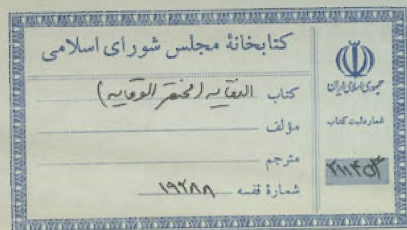 کتابخانهٔ مجلس شورای اسلامی
کتاب النقایه (مختصر الوقایه)
مؤلف
مترجم
شمارهٔ قفسه ۱۹۲۸۸
جمهوری اسلامی ایران
شماره ثبت کتاب